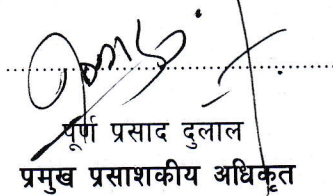 पूर्ण प्रसाद दुलाल
प्रमुख प्रसाशकीय अधिकृत